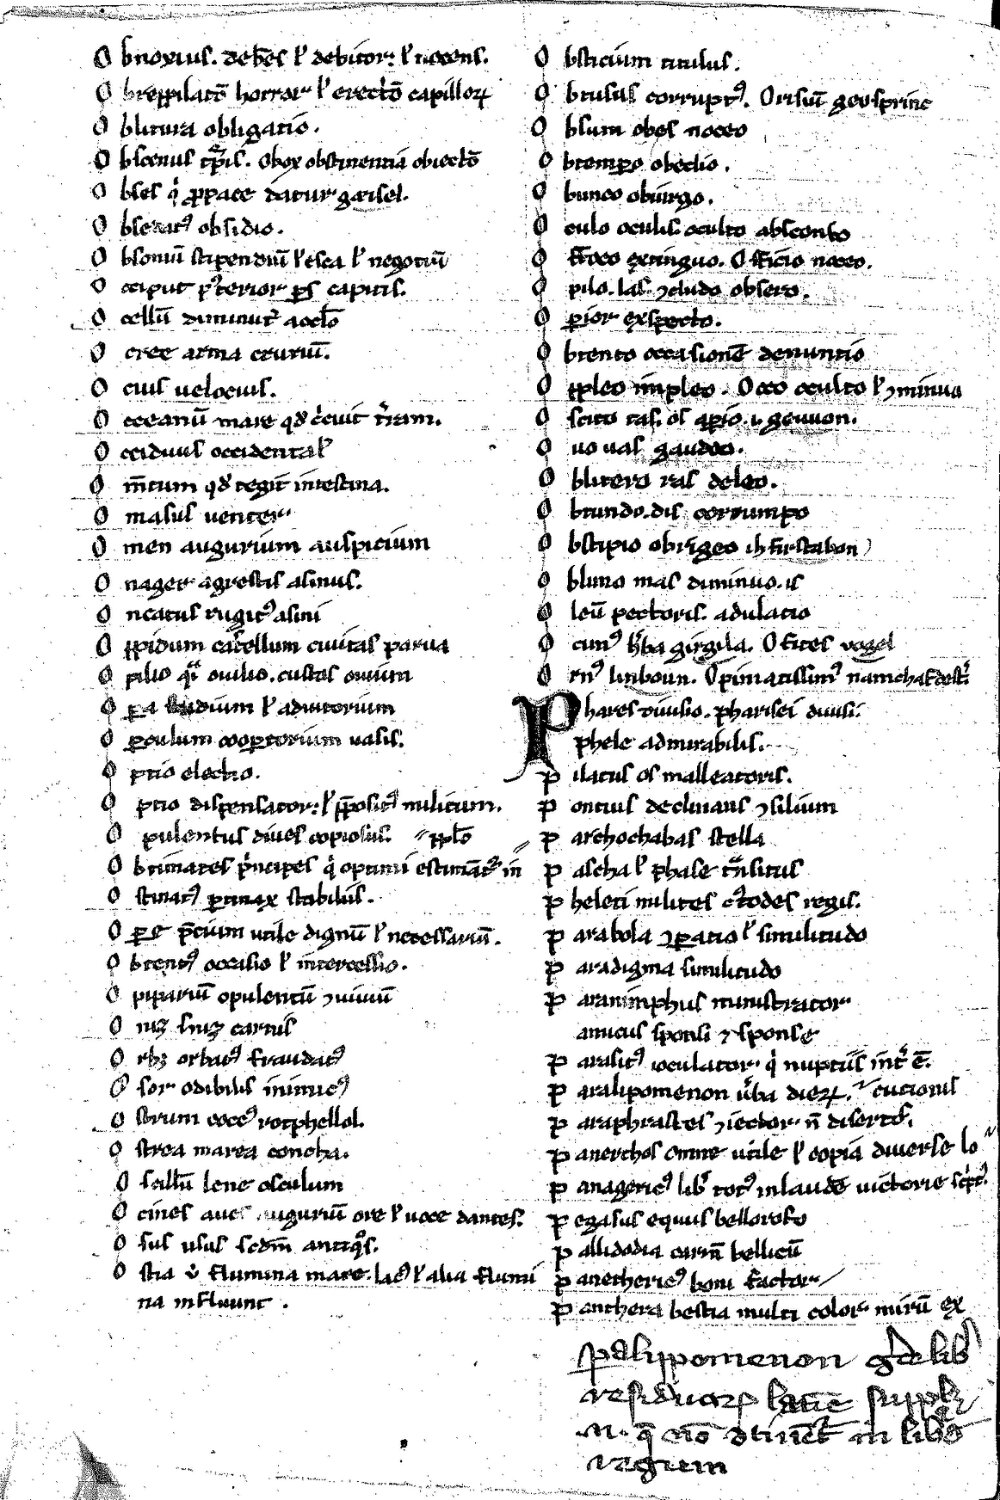 O bnoxius. debēs ł debitor: ł nocens.
O brepilatō horror ł erectō capilloꝝ
O blitura obligatio.
O bscenus tp̄is. Obox obstinentia obiectō
O bses q̇ p̱pace datur gœisel.
O bseratꝰ obsidio.
O bsoniū stipendiū ł esca ł negotiū
O cciput pꝰterior ꝑs capitis.
O cellū diminut᷑ aoclō
O cree arma cruriū.
O cius velocius.
O cceanū mare qđ c̓cuit t̓ram.
O cciduus occidental᷑
O m̄tum qđ tegit intestina.
O masus venter
O men augurium auspicium
O nager agrestis asinus.
O ncatus rugitꝰ asini
O ppidum castellum civitas parua
O pilio qͣ ouilio. custos ouium
O ꝑa studium ł adiutorium
O ꝑculum cooꝑtorium vasis.
O ptio electio.
O ptio dispensator: ł p̄positꝰ militum.
O pulentus dives copiosus. pplō
O btimates p̓ncipes q̇ optimi estimāt᷑ in
O stinatꝰ ꝑtinax stabilis.
O ꝑe p̄cium utile dignū ł necessariū.
O btentꝰ occasio ł intercessio.
O pipariū opulentū ꝯuiuiū
O rbꝫ orbatꝰ fraudatꝰ
O sor odibilis inimicꝰ
O strum cocꝰ rotphellol.
O strea marea concha.
O scillū lene osculum
O cines aues auguriū ore ł uoce dantes.
O sus usus scdm̄ antiqͦs.
O stia v̓ flumina mare. lacꝰ ł alia flumi
na influunt.
O bsticium titulus.
O btusus corruptꝰ. Orisuū geosprinc
O bsum obes noceo
O btempero obedio.
O biurgo.
O culo oculis oculto absconto
O ffoco extinguo. Officio noceo.
O pilo. las ꝯcludo obsero.
O ꝑior exspecto.
O btento occasionē denuntio
O ppleo impleo. Occo oculto ł ꝯminuo
O scito tas. os aꝑio. v geuuon.
O uo uas gaudeo.
O blitero ras deleo.
O btundo. dis corrumpo
O bstipio obrigeo
O bliuio mas diminuo. is
O leū pectoris. adulatio
O cimꝰ h̓ba girgila. Ofices vogel
O rnꝰ linboun. Opimatissimꝰ
P hares diuisio. pharisei diuisi.
phele admirabilis.
P ilatus os malleatoris.
P ontius declinans ꝯsilium
P archochabas stella
P ascha ł phase tͣnsitus
P heleti milites cꝰtodes regis.
P arabola ꝯꝑatio ł similitudo
P aradigma similitudo
P aranimphus ministrator
amicus sponsi ⁊ sponse
P arasitꝰ ioculator q̇ nuptiis int̓ ē.
P aralipomenon v̓ba dieꝝ. cucionis
P araphrastes ꝯiector n̄ disertꝰ.
P anerchos omne utile ł copia diuerse lo
P anagericꝰ lib̓ totꝰ in laudē victorie scptꝰ.
P egasus equus bellorofo
P allidodia carm̄ bellicū
P anethericꝰ boni factor
P anthera bestia multi color mirū ex
Palippomenon gͣde lib᷑
residuoꝝ
.n. q̄ nō ꝯtinēt᷑ in libͦ
regum